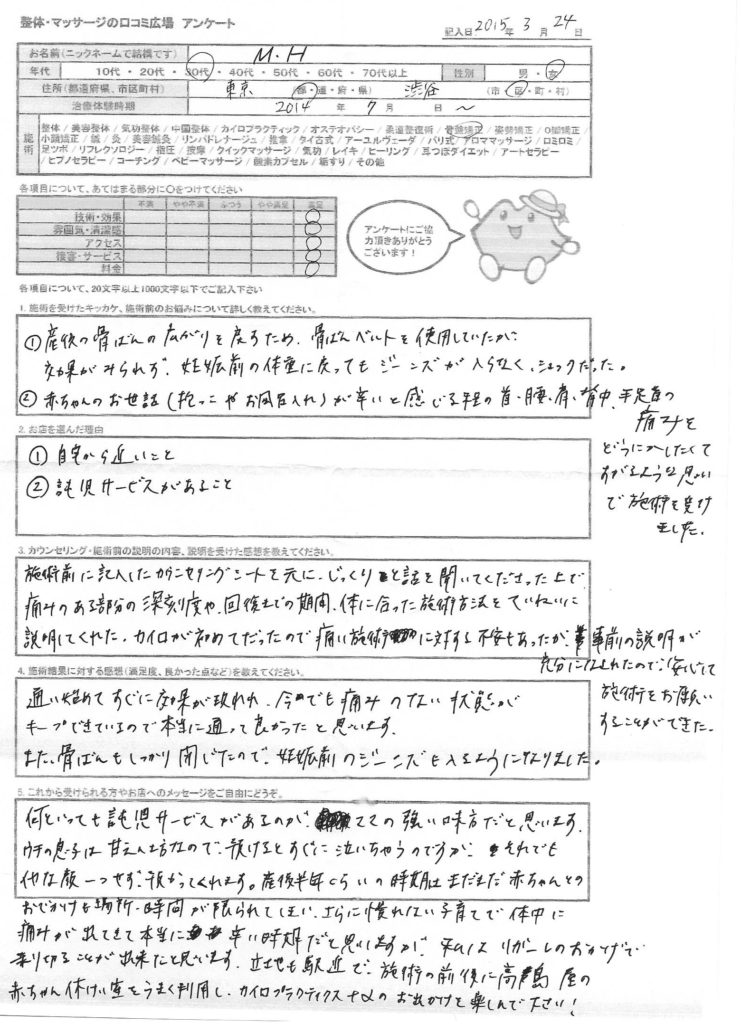 整体・マッサージの口コミ広場 アンケート
記入日 2015年 3月 24日
お名前(ニックネームで結構です) M.H
年代 10代・20代・30代・40代・50代・60代・70代以上 性別 男・女
住所(都道府県、市区町村) 東京 (都・道・府・県) 渋谷 (市・区・町・村)
治療体験時期 2014年 7月 日 〜
施術
整体 / 美容整体 / 気功整体 / 中国整体 / カイロプラクティック / オステオパシー / 柔道整復術 / 骨盤矯正 / 姿勢矯正 / O脚矯正
小顔矯正 / 鍼 / 灸 / 美容鍼灸 / リンパドレナージュ / 推拿 / タイ古式 / アーユルヴェーダ / バリ式 / アロママッサージ / ロミロミ
足ツボ / リフレクソロジー / 指圧 / 按摩 / クイックマッサージ / 気功 / レイキ / ヒーリング / 耳つぼダイエット / アートセラピー
ヒプノセラピー / コーチング / ベビーマッサージ / 酸素カプセル / 垢すり / その他
各項目について、あてはまる部分に○をつけてください
不満 やや不満 ふつう やや満足 満足
技術・効果
雰囲気・清潔感
アクセス
接客・サービス
料金
アンケートにご協
力頂きありがとう
ございます!
各項目について、20文字以上1000文字以下でご記入下さい
1. 施術を受けたキッカケ、施術前のお悩みについて詳しく教えてください。
①産後の骨ばんの広がりを戻すため、骨ばんベルトを使用していたが
効果がみられず、妊娠前の体重に戻ってもジーンズが入らなく、ショックだった。
②赤ちゃんのお世話(抱っこやお風呂入れ)が辛いと感じる程の首・腰・肩・背中、手足首の
痛みを
どうにかしたくて
すがるような思い
で施術を受け
ました。
2. お店を選んだ理由
①自宅から近いこと
②託児サービスがあること
3. カウンセリング・施術前の説明の内容、説明を受けた感想を教えてください。
施術前に記入したカウンセリングシートを元に、じっくりと話を聞いてくださった上で
痛みのある部分の深刻度や、回復までの期間、体に合った施術方法をていねいに
説明してくれた。カイロが初めてだったので痛い施術に対する不安もあったが、事前の説明が
充分になされたので、安心して
施術をお願い
することができた。
4. 施術結果に対する感想(満足度、良かった点など)を教えてください。
通い始めてすぐに効果が現われ、今でも痛みのない状態が
キープできているので本当に通って良かったと思います。
また、骨ばんもしっかり閉じたので、妊娠前のジーンズも入るようになりました。
5. これから受けられる方やお店へのメッセージをご自由にどうぞ。
何といっても託児サービスがあるのが、ママの強い味方だと思います。
ウチの息子は甘えん坊なので、預けるとすぐに泣いちゃうのですが、それでも
イヤな顔一つせず、預かってくれます。産後半年くらいの時期はまだまだ赤ちゃんとの
おでかけも場所・時間が限られてしまい、さらに慣れない子育てで体中に
痛みが出てきて本当に辛い時期だと思いますが、私はリガーレのおかげで
乗り切ることが出来たと思います。立地も駅近で、施術の前後に高島屋の
赤ちゃん休けい室をうまく利用し、カイロプラクティクス+αのお出かけを楽しんで下さい!